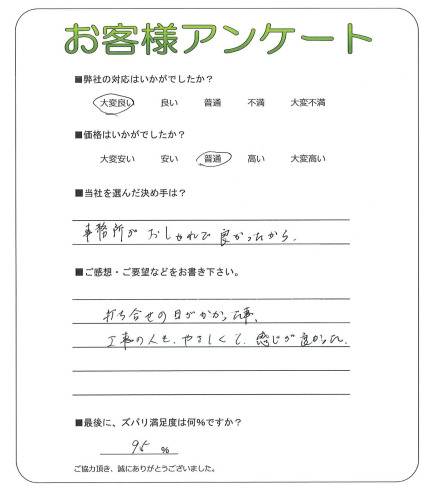 お客様アンケート
■弊社の対応はいかがでしたか？
大変良い 良い 普通 不満 大変不満
■価格はいかがでしたか？
大変安い 安い 普通 高い 大変高い
■当社を選んだ決め手は？
事務所が おしゃれで 良かったから、
■ご感想・ご要望などをお書き下さい。
打ち合せの日がかかった事、
工事の人も、やさしくて、感じが良かった。
■最後に、ズバリ満足度は何％ですか？
95 %
ご協力頂き、誠にありがとうございました。